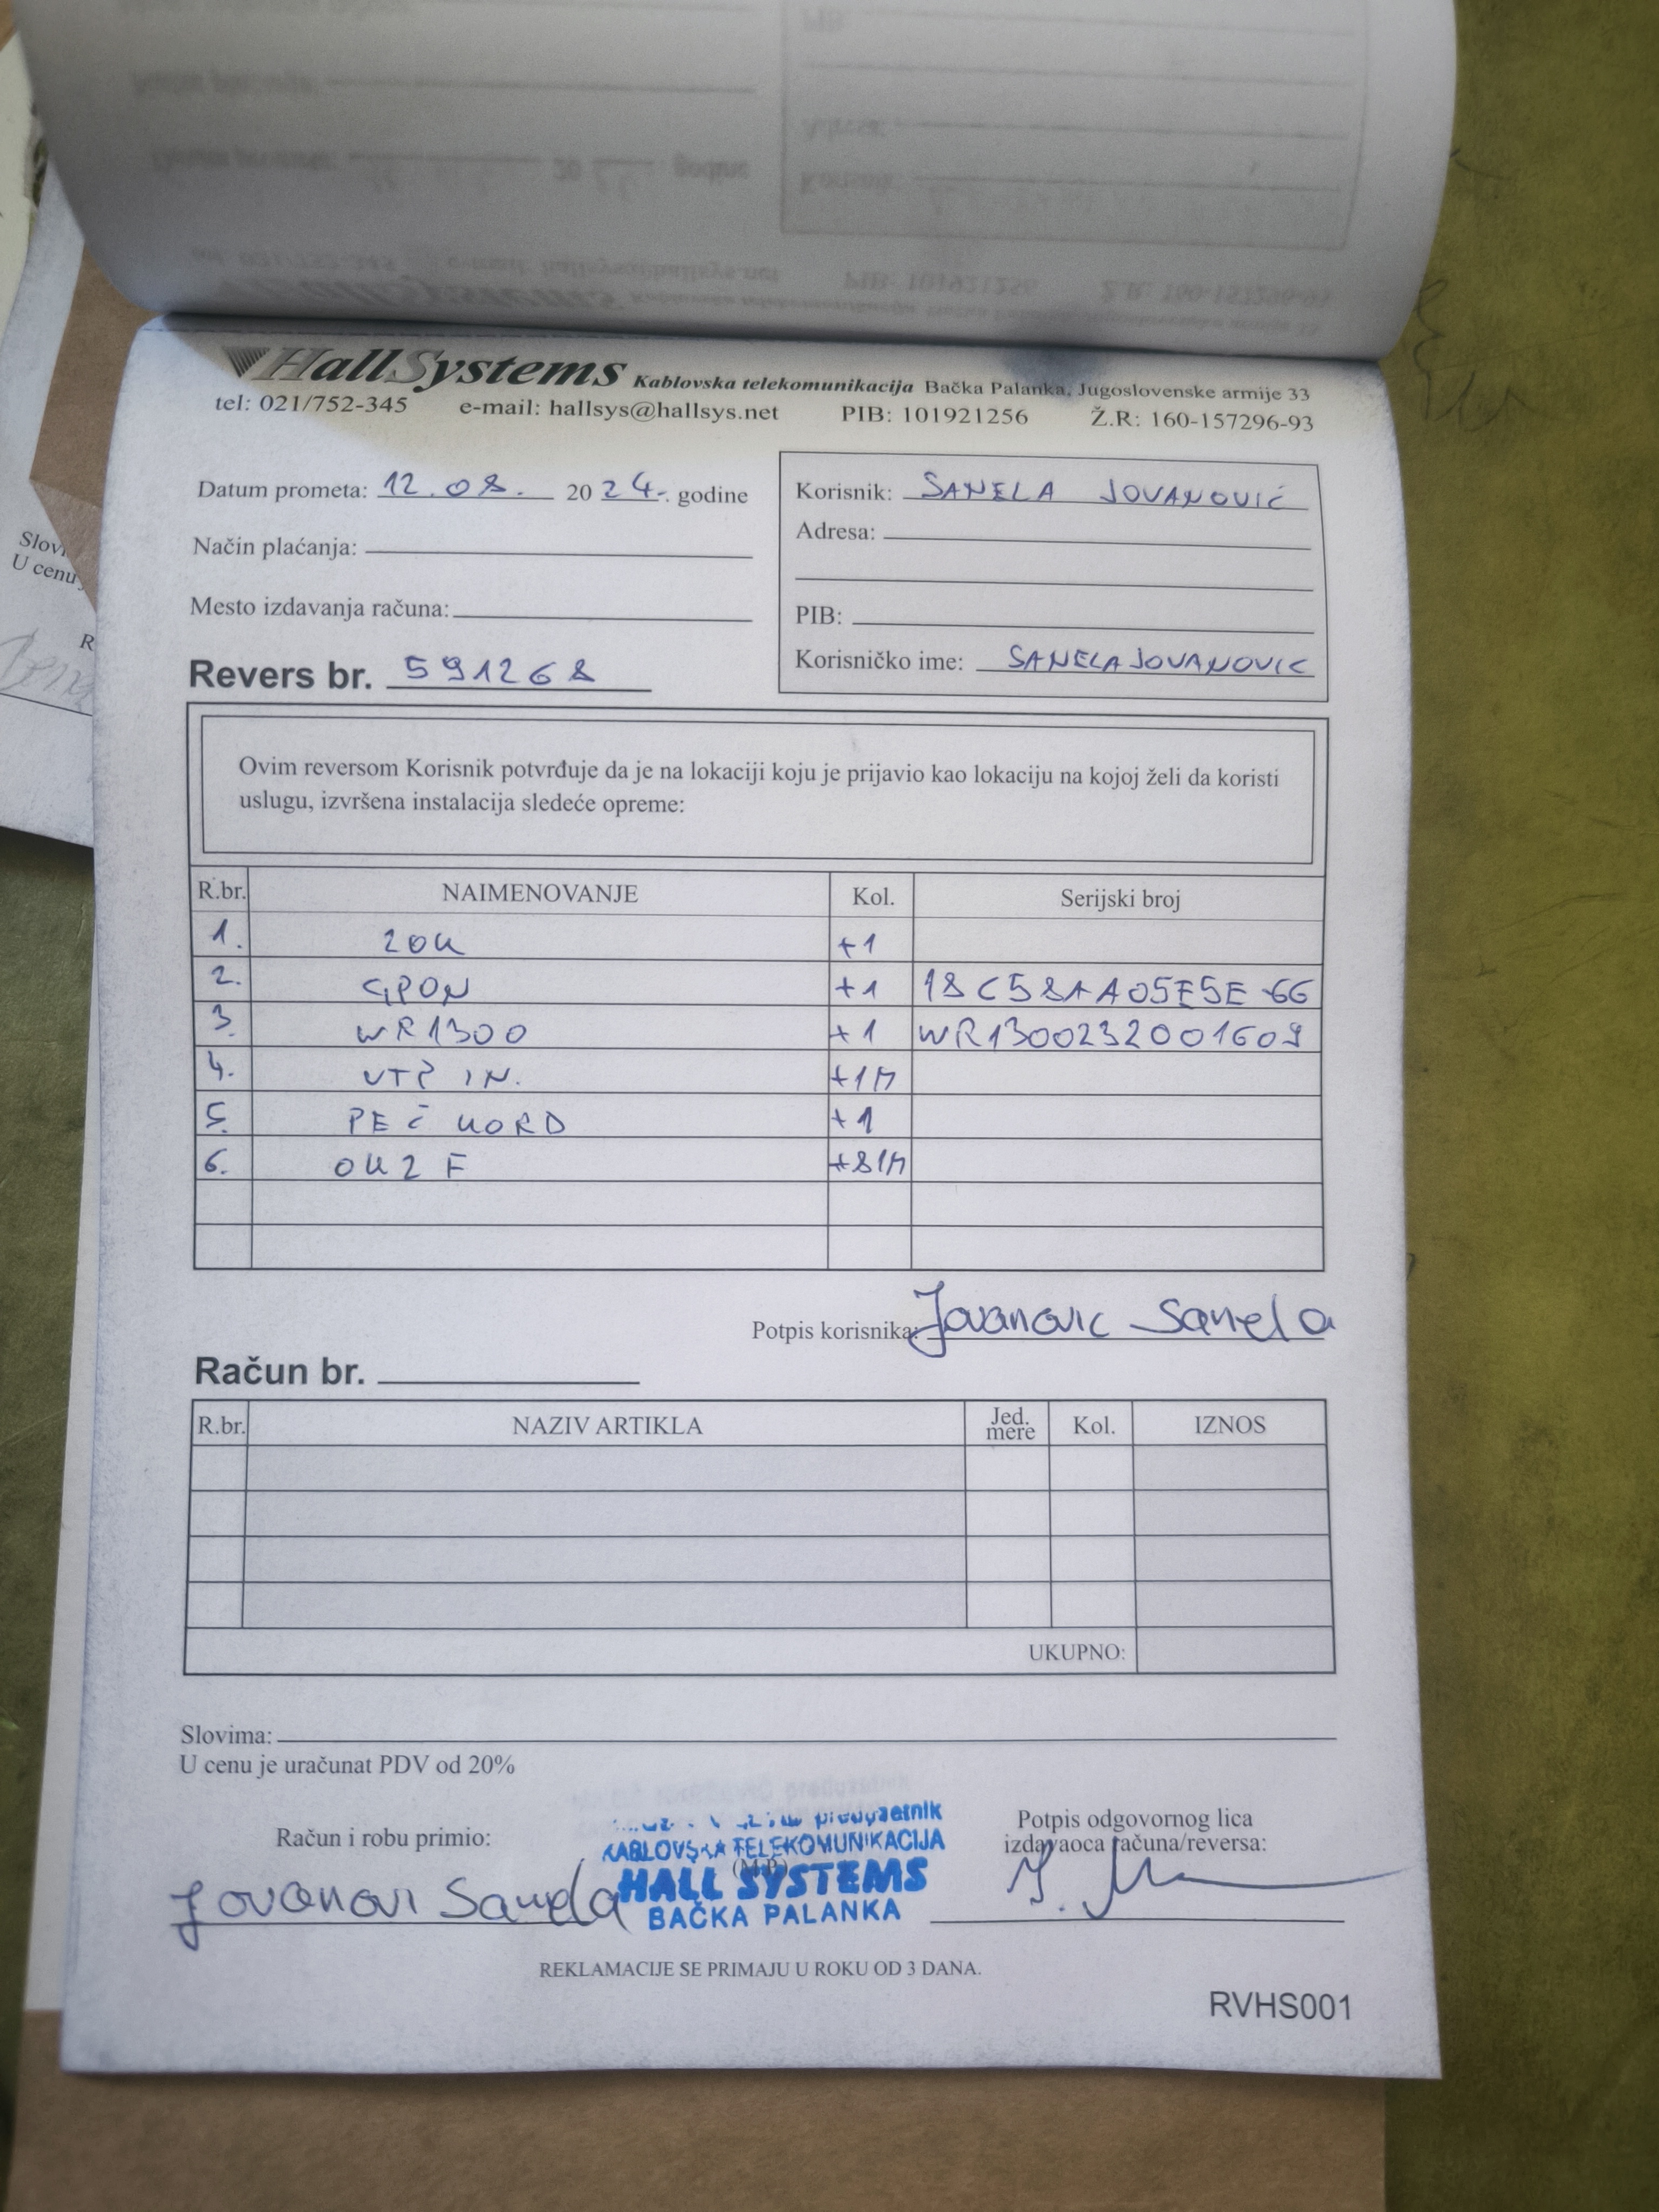 HallSystems Kablovska telekomunikacija Bačka Palanka, Jugoslovenske armije 33
tel: 021/752-345 e-mail: hallsys@hallsys.net PIB: 101921256 Ž.R: 160-157296-93
Datum prometa: 12.08. 2024. godine
Način plaćanja:
Mesto izdavanja računa:
Revers br. 591268
Korisnik: SANELA JOVANOVIĆ
Adresa:
PIB:
Korisničko ime: SANELAJOVANOVIC
Ovim reversom Korisnik potvrđuje da je na lokaciji koju je prijavio kao lokaciju na kojoj želi da koristi
uslugu, izvršena instalacija sledeće opreme:
R.br. NAIMENOVANJE Kol. Serijski broj
1. ZOK +1
2. GPON +1 18C58AA05E5E-66
3. WR1300 +1 WR1300232001609
4. UTP IN. +1M
5. PEČ KORD +1
6. OK2F +81M
Potpis korisnika: Jovanovic Sanela
Račun br.
R.br. NAZIV ARTIKLA Jed. mere Kol. IZNOS
UKUPNO:
Slovima:
U cenu je uračunat PDV od 20%
Račun i robu primio:
Jovanovi Sanela
preduzetnik
KABLOVSKA TELEKOMUNIKACIJA
(M.P.)
HALL SYSTEMS
BAČKA PALANKA
Potpis odgovornog lica
izdavaoca računa/reversa:
REKLAMACIJE SE PRIMAJU U ROKU OD 3 DANA.
RVHS001
Slovi
U cenu
R